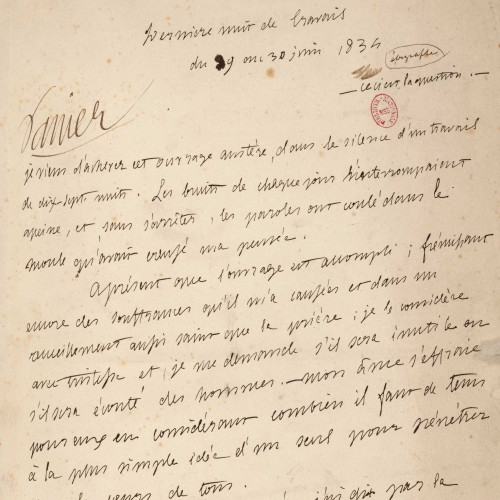 Dernière nuit de travail
du 29 au 30 juin 1834
épigraphe
— ceci est la question. —
je viens d'achever cet ouvrage austère, dans le silence d'un travail
de dix-sept nuits. Les bruits de chaque jour l'interrompaient
apeine, et sans s'arrêter, les paroles ont coulé dans le
moule qu'avait creusé ma pensée.
Aprésent que l'ouvrage est accompli ; frémissant
encore des souffrances qu'il m'a causées et dans un
recueillement aussi saint que la prière ; je le considère
avec tristesse et je me demande s'il sera inutile ou
s'il sera écouté des hommes. — mon âme s'effraie
pour eux en considérant combien il faut de tems
à la plus simple idée d'un seul pour pénétrer
de tous.
par la